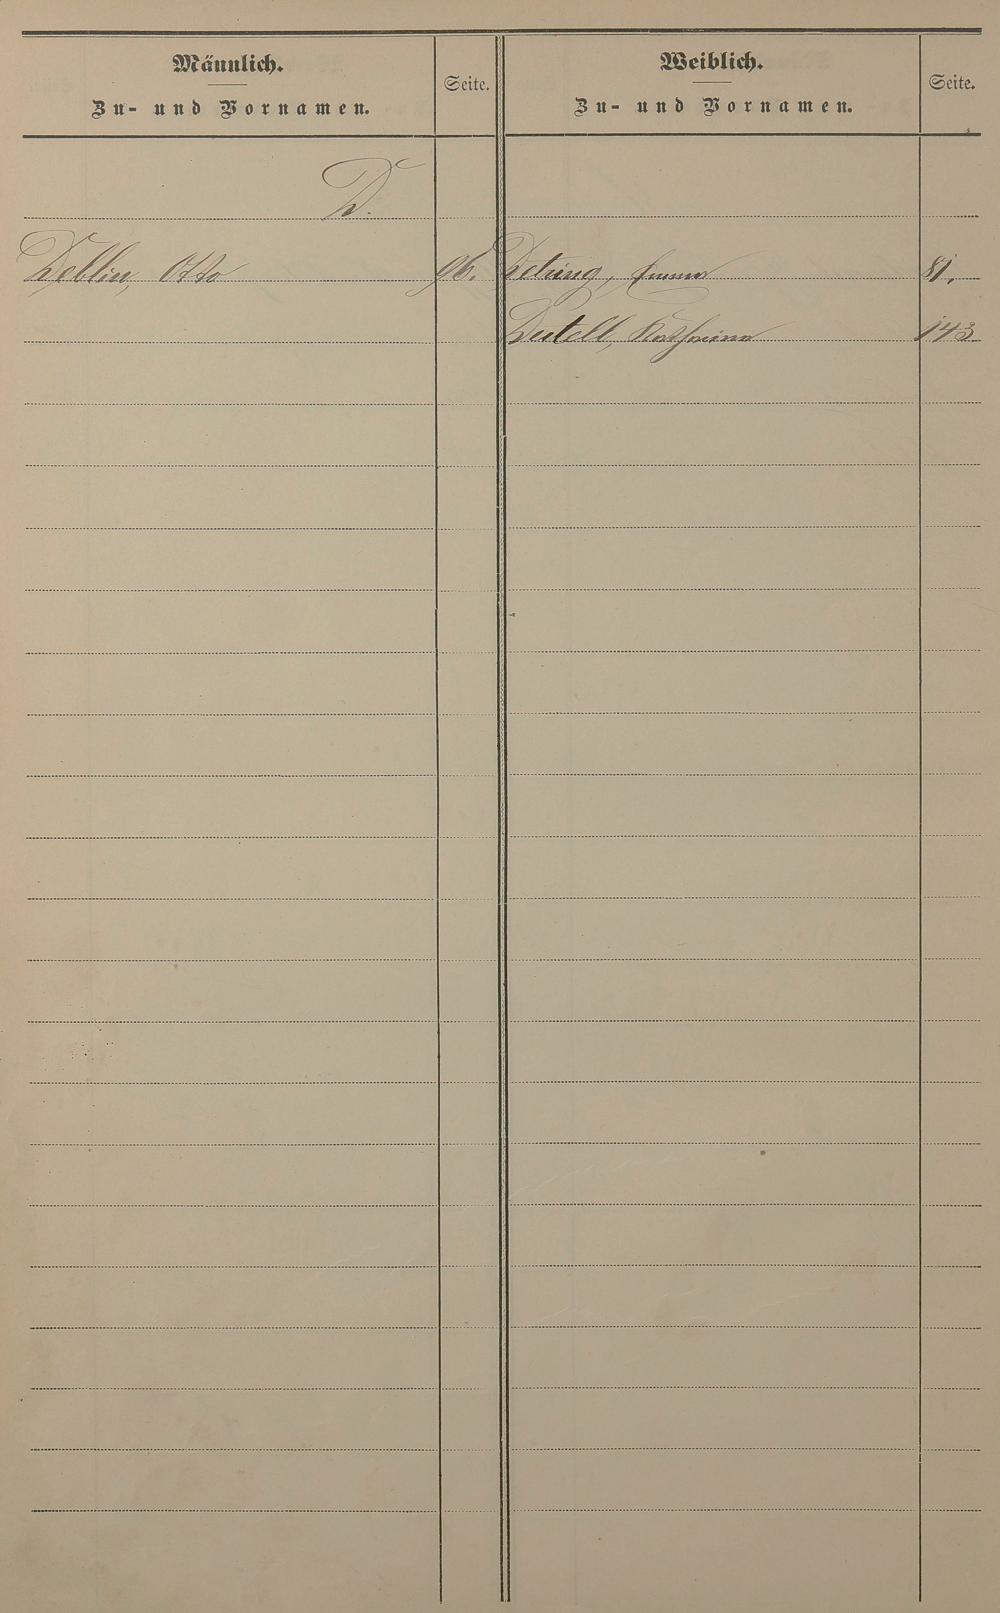 Männlich.
Zu- und Vornamen.
Seite.
Weiblich.
Zu- und Vornamen.
Seite.
D.
Deblin, Otto 96. Detring, Emma 81.
Destell, Katharina 143